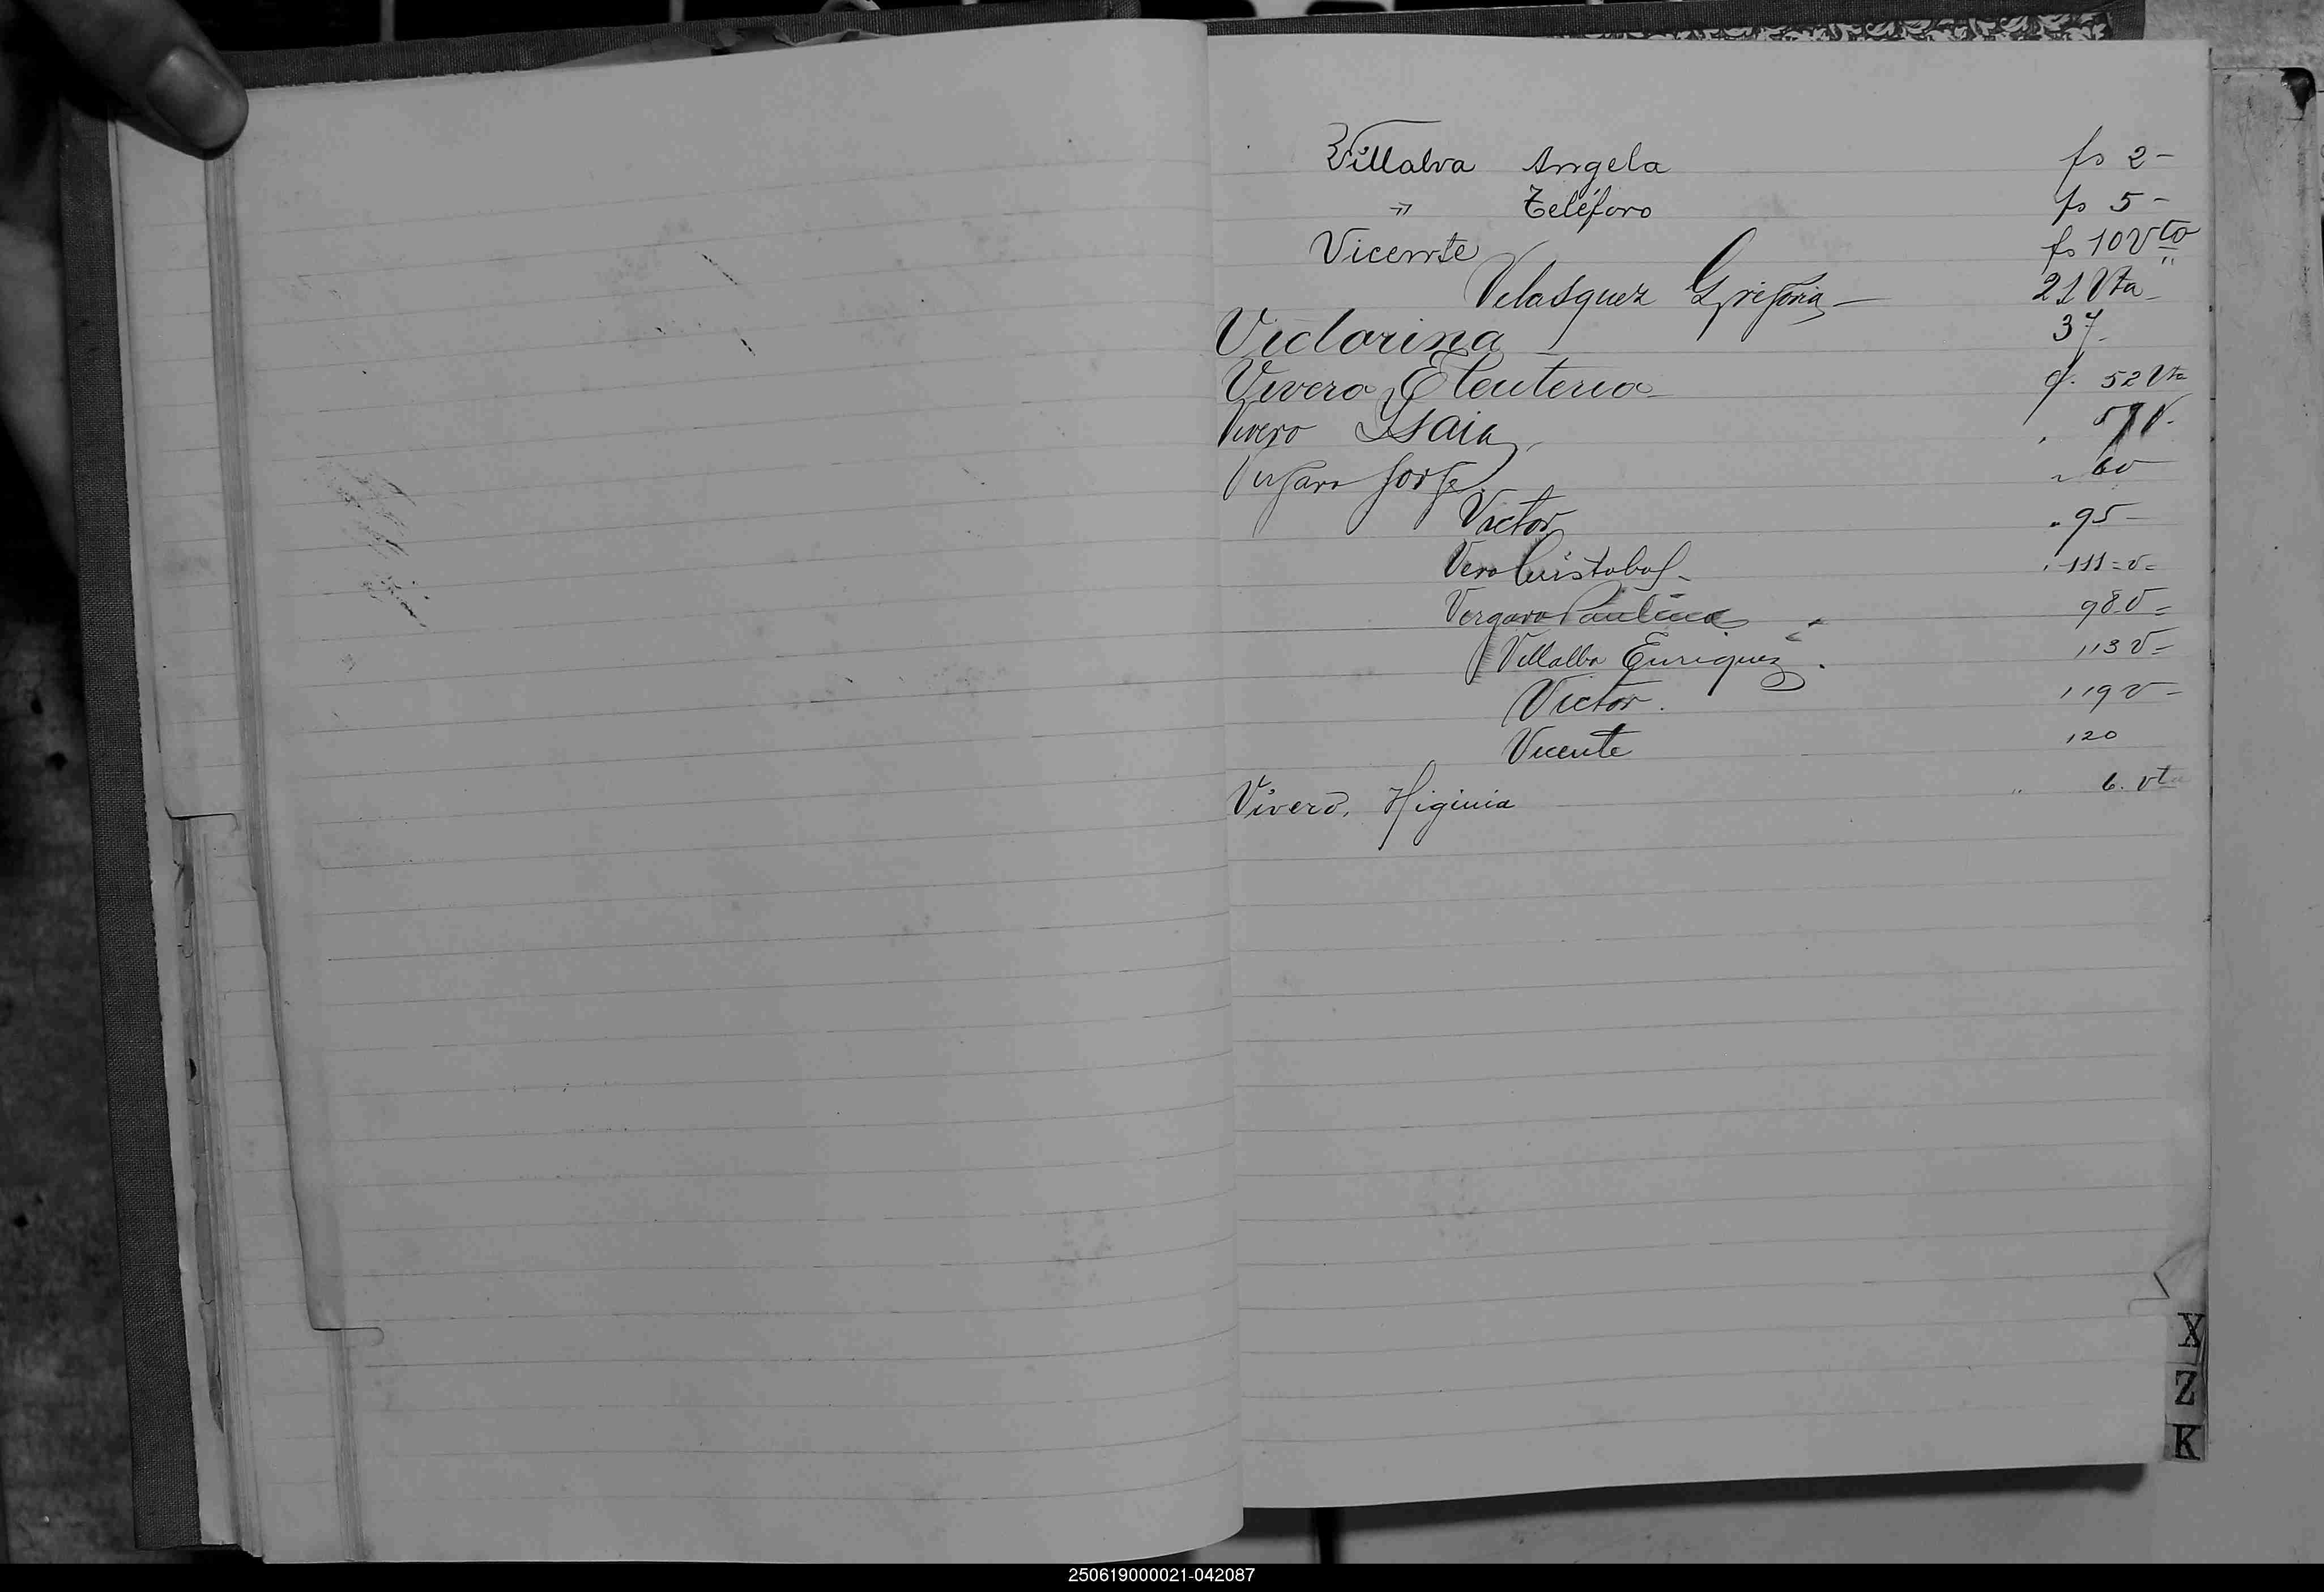 Villalva Angela fs 2-
" Teléforo fs 5-
Vicente fs 10 Vto
Velasquez Gregoria - 21 Vta -
Victorina 37-
Vivero Eleuterio - f. 52 Vta
Vivero Isaias 57 V-
Vergara Jorge " 60
Victor " 95 -
Vera Cristobal - " 111 = v =
Vergara Paulina 98 V =
Villalba Enriquez . 113 V -
Victor . 119 v -
Vicente 120
Vivero, Higinia " 6. vta
X
Z
K
250619000021-042087